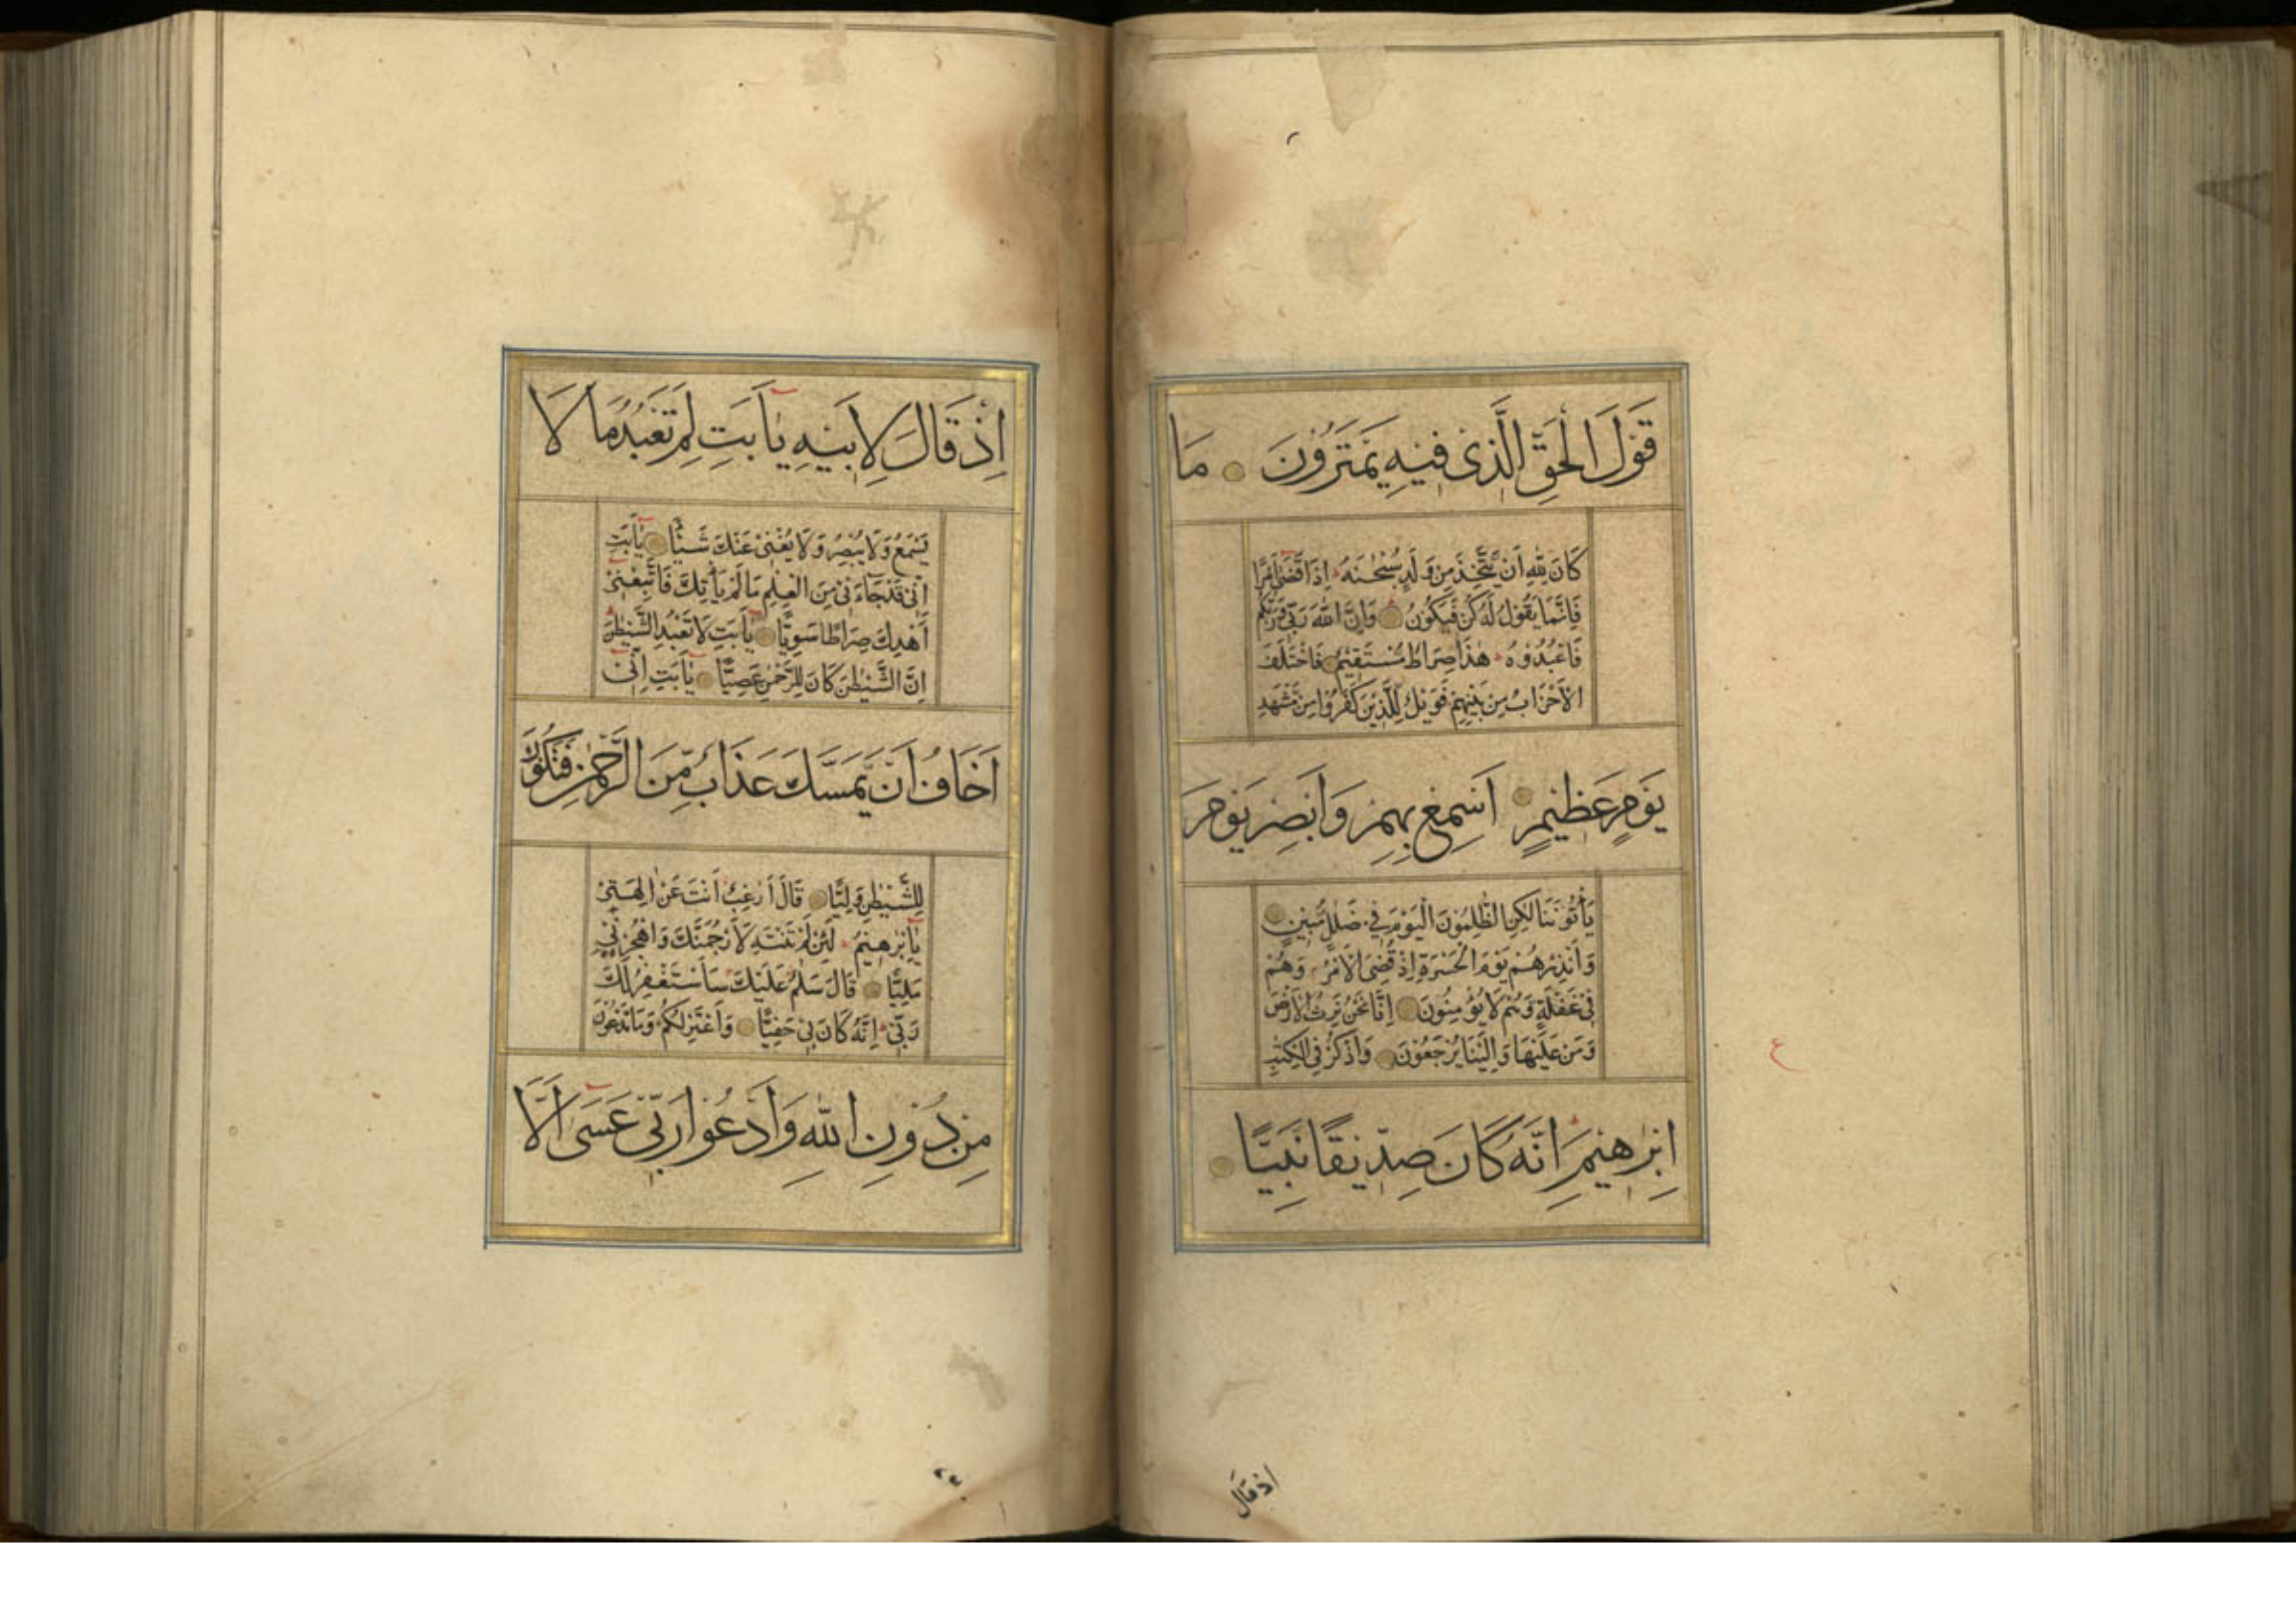 قَوْلَ الْحَقِّ الَّذِىْ فِيْهِ يَمْتَرُوْنَ مَا
كَانَ لِلّٰهِ اَنْ يَّتَّخِذَ مِنْ وَلَدٍ سُبْحٰنَهُ اِذَا قَضٰى اَمْرًا
فَاِنَّمَا يَقُوْلُ لَهُ كُنْ فَيَكُوْنُ وَاِنَّ اللّٰهَ رَبِّىْ وَرَبُّكُمْ
فَاعْبُدُوْهُ هٰذَا صِرَاطٌ مُّسْتَقِيْمٌ فَاخْتَلَفَ
الْاَحْزَابُ مِنْ بَيْنِهِمْ فَوَيْلٌ لِّلَّذِيْنَ كَفَرُوْا مِنْ مَّشْهَدِ
يَوْمٍ عَظِيْمٍ اَسْمِعْ بِهِمْ وَاَبْصِرْ يَوْمَ
يَأْتُوْنَنَا لٰكِنِ الظّٰلِمُوْنَ الْيَوْمَ فِىْ ضَلٰلٍ مُّبِيْنٍ
وَاَنْذِرْهُمْ يَوْمَ الْحَسْرَةِ اِذْ قُضِىَ الْاَمْرُ وَهُمْ
فِىْ غَفْلَةٍ وَّهُمْ لَا يُؤْمِنُوْنَ اِنَّا نَحْنُ نَرِثُ الْاَرْضَ
وَمَنْ عَلَيْهَا وَاِلَيْنَا يُرْجَعُوْنَ وَاذْكُرْ فِى الْكِتٰبِ
اِبْرٰهِيْمَ اِنَّهُ كَانَ صِدِّيْقًا نَّبِيًّا
ع
اذ قال
اِذْ قَالَ لِاَبِيْهِ يٰاَبَتِ لِمَ تَعْبُدُ مَا لَا
يَسْمَعُ وَلَا يُبْصِرُ وَلَا يُغْنِىْ عَنْكَ شَيْئًا يٰاَبَتِ
اِنِّىْ قَدْ جَاءَنِىْ مِنَ الْعِلْمِ مَا لَمْ يَأْتِكَ فَاتَّبِعْنِىْ
اَهْدِكَ صِرَاطًا سَوِيًّا يٰاَبَتِ لَا تَعْبُدِ الشَّيْطٰنَ
اِنَّ الشَّيْطٰنَ كَانَ لِلرَّحْمٰنِ عَصِيًّا يٰاَبَتِ اِنِّىْ
اَخَافُ اَنْ يَّمَسَّكَ عَذَابٌ مِّنَ الرَّحْمٰنِ فَتَكُوْنَ
لِلشَّيْطٰنِ وَلِيًّا قَالَ اَرَاغِبٌ اَنْتَ عَنْ اٰلِهَتِىْ
يٰاِبْرٰهِيْمُ لَئِنْ لَّمْ تَنْتَهِ لَاَرْجُمَنَّكَ وَاهْجُرْنِىْ
مَلِيًّا قَالَ سَلٰمٌ عَلَيْكَ سَاَسْتَغْفِرُ لَكَ
رَبِّىْ اِنَّهُ كَانَ بِىْ حَفِيًّا وَاَعْتَزِلُكُمْ وَمَا تَدْعُوْنَ
مِنْ دُوْنِ اللّٰهِ وَاَدْعُوْا رَبِّىْ عَسٰى اَلَّا